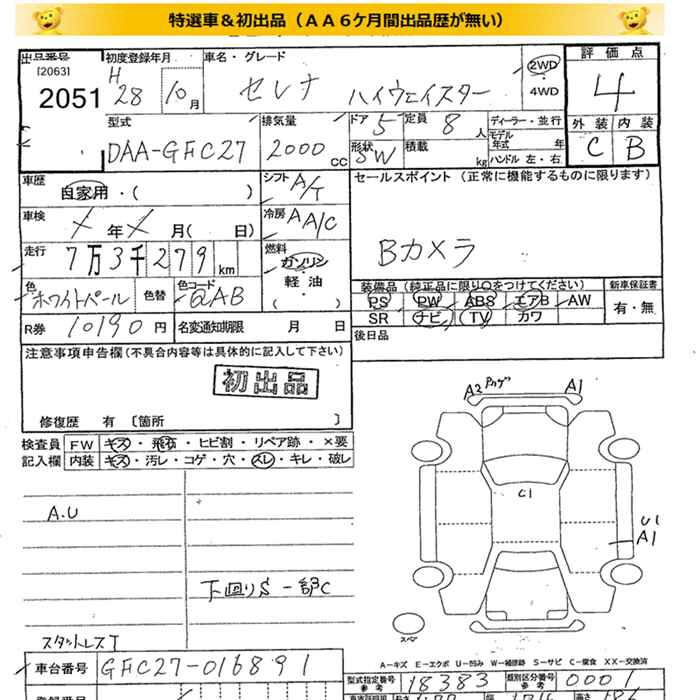 特選車＆初出品（ＡＡ６ケ月間出品歴が無い）
出品番号 初度登録年月 車名・グレード 評価点
[2063] H
2051 28 10月 セレナ ハイウェイスター 2WD 4
4WD
型式 排気量 ドア 5 定員 8人 ディーラー・並行 外装 内装
モデル年式 年
DAA-GFC27 2000CC 形状 SW 積載 kg ハンドル 左・右 C B
車歴 自家用・( ) シフト A/T セールスポイント（正常に機能するものに限ります）
車検 年 月( 日) 冷房 A A/C
走行 7万3千279km 燃料 ガソリン Bカメラ
軽油
( )
色 ホワイトパール 色替 色コード QAB 装備品（純正品に限り○をつけてください） 新車保証書
PS PW ABS エアB AW 有・無
R券 10190円 名変通知期限 月 日 SR ナビ TV カワ
後日品
注意事項申告欄（不具合内容等は具体的に記入して下さい）
初出品
修復歴 有〔箇所 〕
検査員 FW キズ・飛石・ヒビ割・リペア跡・×要
記入欄 内装 キズ・汚レ・コゲ・穴・スレ・キレ・破レ
A2 A1
C1
U1
A1
A.U
下回りS 一部C
スペア
スタットレスT
A－キズ E－エクボ U－凹み W－補修跡 S－サビ C－腐食 XX－交換済
車台番号 GFC27-016891
型式指定番号 参考 18383 類別区分番号 参考 0001